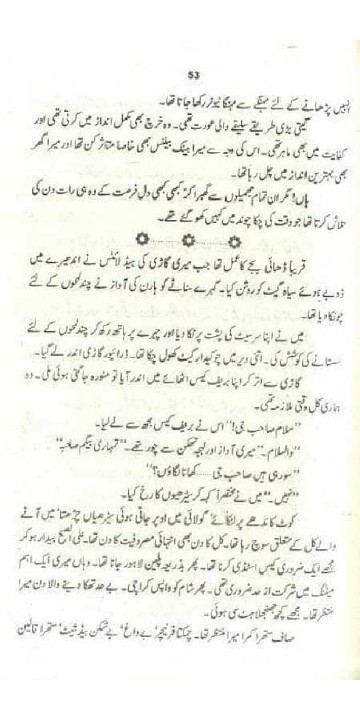 53
انہیں پڑھانے کے لئے مہنگے سے مہنگا ٹیوٹر رکھا جاتا تھا۔
گیتی بڑی طریقے سلیقے والی عورت تھی۔ وہ خرچ بھی مکمل انداز میں کرتی تھی اور
کفایت میں بھی ماہر تھی۔ اس کی وجہ سے میرا بینک بیلنس بھی خاصا متاثر کن تھا اور میرا گھر
بھی بہترین انداز میں چل رہا تھا۔
ہاں! مگر ان تمام جھمیلوں سے گھبرا کر کبھی کبھی دل فرصت کے وہ ہی رات دن کی
تلاش کرتا تھا جو وقت کی چکا چوند میں کہیں کھو گئے تھے۔
قریباً ڈھائی بجے کا عمل تھا جب میری گاڑی کی ہیڈ لائٹس نے اندھیرے میں
ڈوبے ہوئے سیاہ گیٹ کو روشن کیا۔ گہرے سناٹے کو ہارن کی آواز نے چند لمحوں کے لئے
چونکا دیا تھا۔
میں نے اپنا سر سیٹ کی پشت پر ٹکا دیا اور چہرے پر ہاتھ رکھ کر چند لمحوں کے لئے
سستانے کی کوشش کی۔ اتنی دیر میں چوکیدار گیٹ کھول چکا تھا۔ ڈرائیور گاڑی اندر لے گیا۔
گاڑی سے اتر کر اپنا بریف کیس اٹھائے میں اندر آیا تو منورہ جاگتی ہوئی ملی۔ وہ
ہماری کل وقتی ملازمہ تھی۔
”سلام صاحب جی!“ اس نے بریف کیس مجھ سے لے لیا۔
”والسلام۔“ میری آواز اور لہجہ تھکن سے چور تھے۔ ”تمہاری بیگم صاحبہ“
”سو رہی ہیں صاحب جی ...... کھانا لگاؤں؟“
”نہیں۔“ میں نے مختصراً کہہ کر سیڑھیوں کا رخ کیا۔
کوٹ کاندھے پر لٹکائے گولائی میں اوپر جاتی ہوئی سیڑھیاں چڑھتا میں آنے
والے کل کے متعلق سوچ رہا تھا۔ کل کا دن بھی انتہائی مصروفیت کا دن تھا۔ علی الصبح بیدار ہو کر
مجھے ایک ضروری کیس اسٹڈی کرنا تھا۔ پھر بذریعہ پلین لاہور جانا تھا۔ وہاں میری ایک اہم
میٹنگ میں شرکت از حد ضروری تھی۔ پھر شام کو واپس کراچی۔ بے حد تھکا دینے والا دن میرا
منتظر تھا۔ مجھے کچھ جھنجھلاہٹ سی ہوئی۔
صاف ستھرا کمرا میرا منتظر تھا۔ چمکتا فرنیچر، بے داغ، بے شکن بیڈ شیٹ، ستھرا قالین